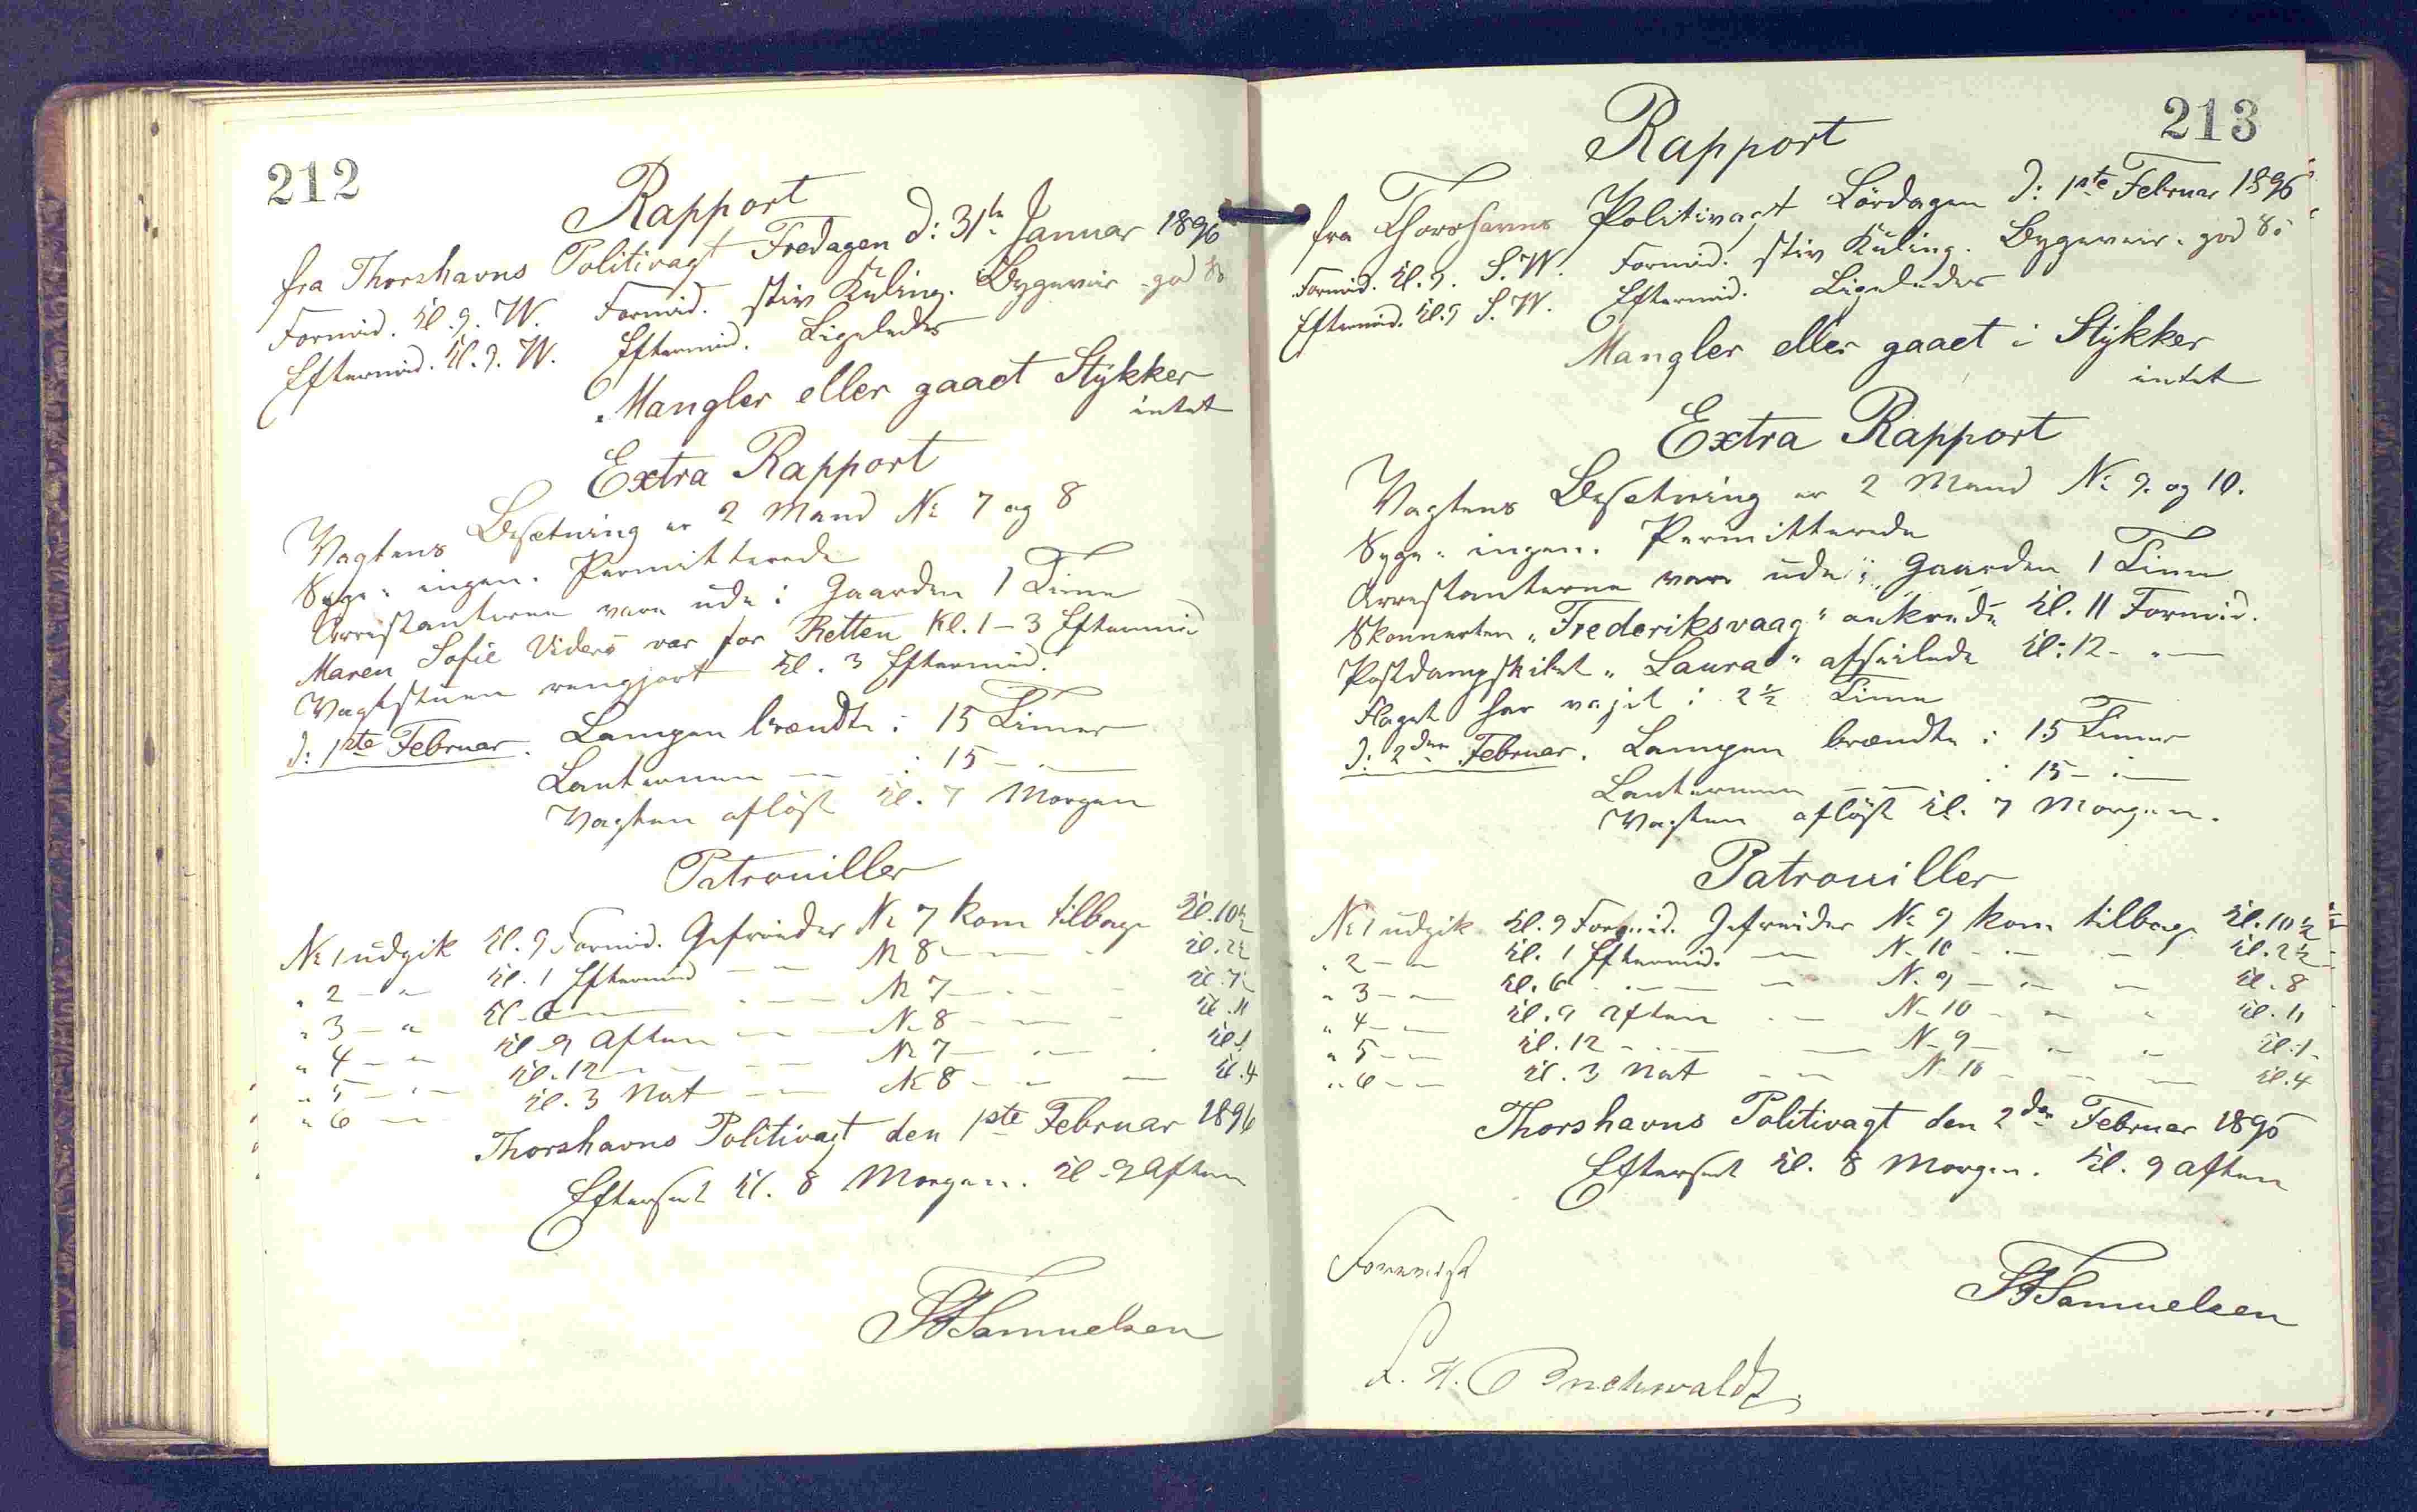 212
Rapport
fra Thorshavns Politivagt Fredagen d: 31te Januar 1896
Formid. Kl. 9. W. Formid. stiv Kuling. Bygeveir. god Sö
Eftermid. Kl. 9. W. Eftermid. Ligeledes
Mangler eller gaaet Stykker
intet
Extra Rapport
Vagtens Besetning er 2 Mand No 7 og 8
Syge: ingen. Permitterede
Arrestanterne vare ude i Gaarden 1 Time
Maren Sofie Viderö var for Retten Kl. 1-3 Eftermid
Vagtstuen rengjort Kl. 3 Eftermid.
d: 1ste Februar. Lampen brændte i 15 Timer
Lanternen — — i 15 — " —
Vagten aflöst Kl. 7 Morgen
Patrouiller
No 1 udgik Kl. 9 Formid. Gefreider No 7 kom tilbage Kl. 10½
" 2 — " Kl. 1 Eftermid — — No 8 — — " Kl. 2½
" 3 — " Kl. 6 — " — — No 7 — — " Kl. 7½
" 4 — " Kl. 9 Aften — — No 8 — — " Kl. 11
" 5 — " Kl. 12 — — — No 7 — " — " Kl. 1
" 6 — Kl. 3 Nat — — No 8 — " — Kl. 4
Thorshavns Politivagt den 1ste Februar 1896
Efterset Kl. 8 Morgen. Kl. 9 Aften
Samuelsen
213
Rapport
fra Thorshavns Politivagt Lördagen d: 1ste Februar 1896
Formid. Kl. 9. S.W. Formid. stiv Kuling. Bygeveir. god Sö
Eftermid. Kl. 9 S.W. Eftermid. Ligeledes
Mangler eller gaaet i Stykker
intet
Extra Rapport
Vagtens Besetning er 2 Mand No 9. og 10.
Syge: ingen. Permitterede
Arrestanterne vare ude i Gaarden 1 Time
Skonnerten "Frederiksvaag" ankrede Kl. 11 Formid.
Postdampskibet "Laura" afseilede Kl: 12 — " —
Flaget har vajet i 2½ Time
d: 2den Februar. Lampen brændte i 15 Timer
Lanternen — — i 15 — " —
Vagten aflöst Kl. 7 Morgen.
Patrouiller
No 1 udgik Kl. 9 Formid. Gefreider No 9 kom tilbage Kl. 10½
" 2 — " Kl. 1 Eftermid. — No 10 — " — Kl. 2½
" 3 — " Kl. 6 — " — — No 9 — " — Kl. 8
" 4 — " Kl. 9 Aften " — No 10 — " " Kl. 11
" 5 — " Kl. 12 — " — — No 9 — " — Kl. 1
" 6 — " Kl. 3 Nat — " No 10 — " — Kl. 4
Thorshavns Politivagt den 2den Februar 1896
Efterset Kl. 8 Morgen. Kl. 9 Aften
Forevist
Samuelsen